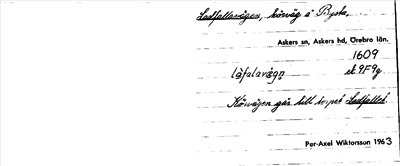 Ladfallavägen, körväg å Bysta.
Askers sn, Askers hd, Örebro län.
1609
ek 9F9g
làfalavägn
Körvägen går till torpet Ladfallet.
Per-Axel Wiktorsson 1963